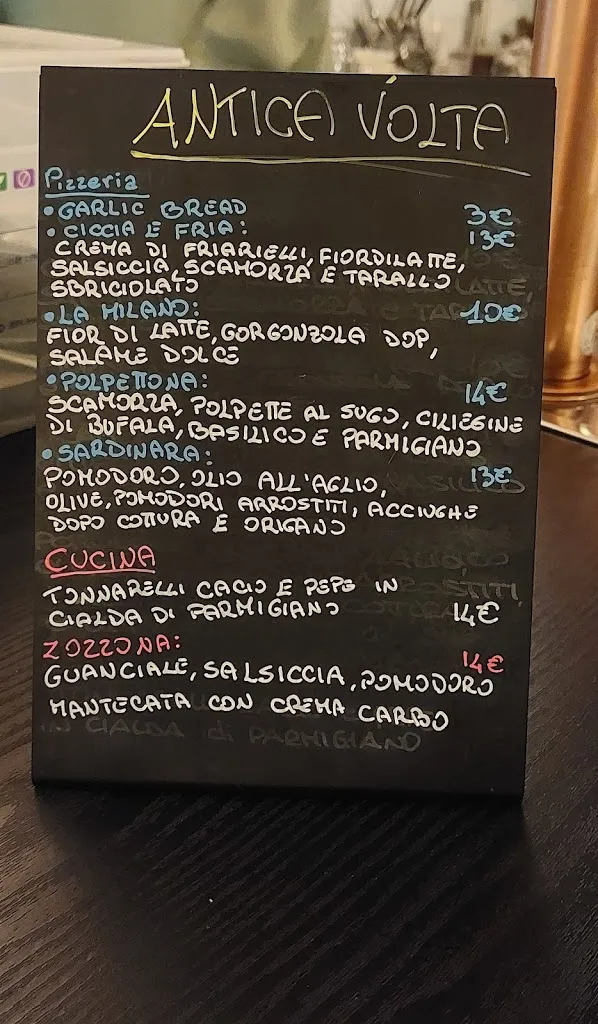 ANTICA VOLTA
Pizzeria
• GARLIC BREAD 3€
• CICCIA E FRIA: 13€
CREMA DI FRIARIELLI, FIORDILATTE,
SALSICCIA, SCAMORZA E TARALLO
SBRICIOLATO
• LA MILANO: 10€
FIOR DI LATTE, GORGONZOLA DOP,
SALAME DOLCE
• POLPETTONA: 14€
SCAMORZA, POLPETTE AL SUGO, CILIEGINE
DI BUFALA, BASILICO E PARMIGIANO
• SARDINARA: 13€
POMODORO, OLIO ALL'AGLIO,
OLIVE, POMODORI ARROSTITI, ACCIUGHE
DOPO COTTURA E ORIGANO
CUCINA
TONNARELLI CACIO E PEPE IN
CIALDA DI PARMIGIANO 14€
ZOZZONA: 14€
GUANCIALE, SALSICCIA, POMODORO
MANTECATA CON CREMA CARBO
IN CIALDA di PARMIGIANO